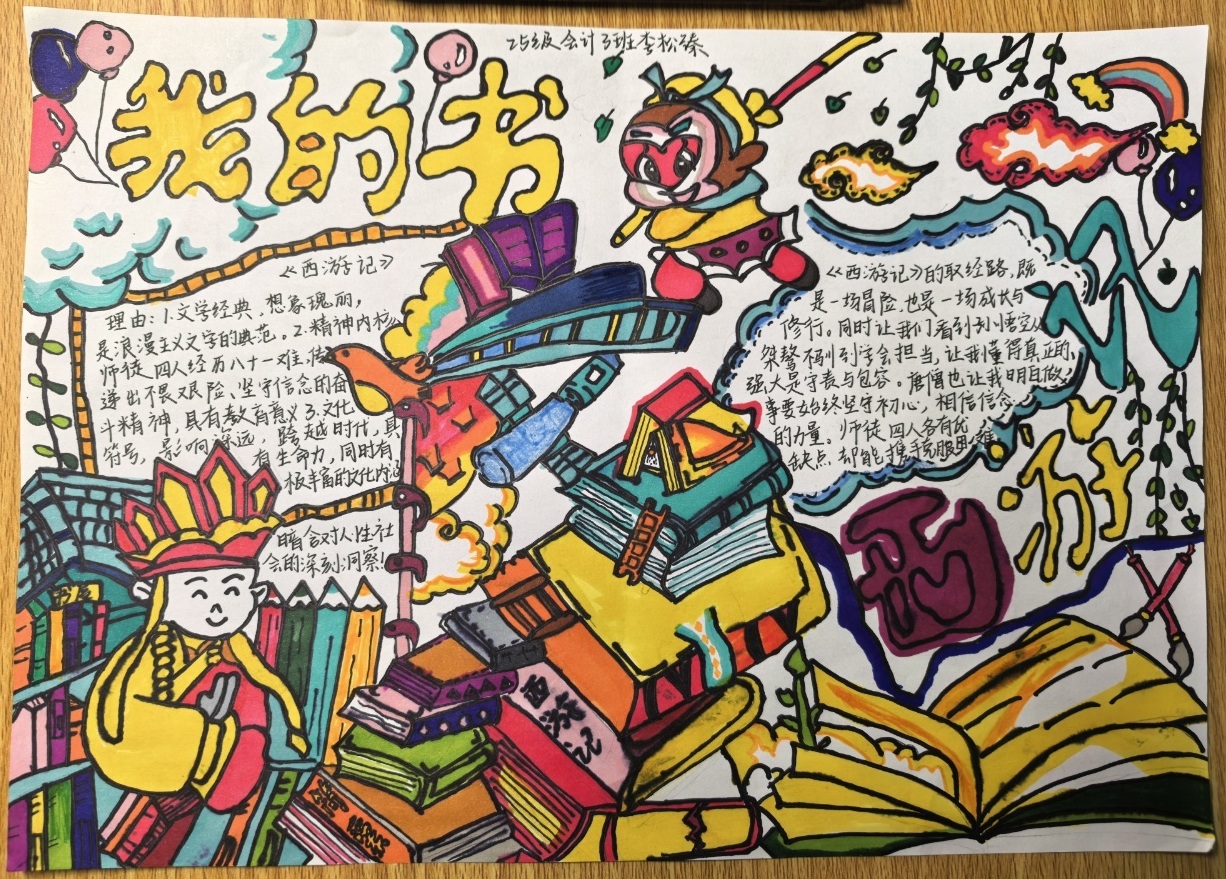 25级会计3班李松臻
我的书
《西游记》
理由:1.文学经典,想象瑰丽,
是浪漫主义文学的典范。2.精神内核
师徒四人经历八十一难,传
递出不畏艰险、坚守信念的奋
斗精神,具有教育意义3.文化
符号,影响深远,跨越时代,具
有生命力,同时有
极丰富的文化内涵
暗含对人性社
会的深刻洞察!
《西游记》的取经路,既
是一场冒险,也是一场成长与
修行。同时让我们看到孙悟空从
桀骜不驯到学会担当,让我懂得真正的
强大是守责与包容。唐僧也让我明白做
事要始终坚守初心,相信信念
的力量。师徒四人各有优
缺点,却能携手克服困难
西游
书屋
西游记